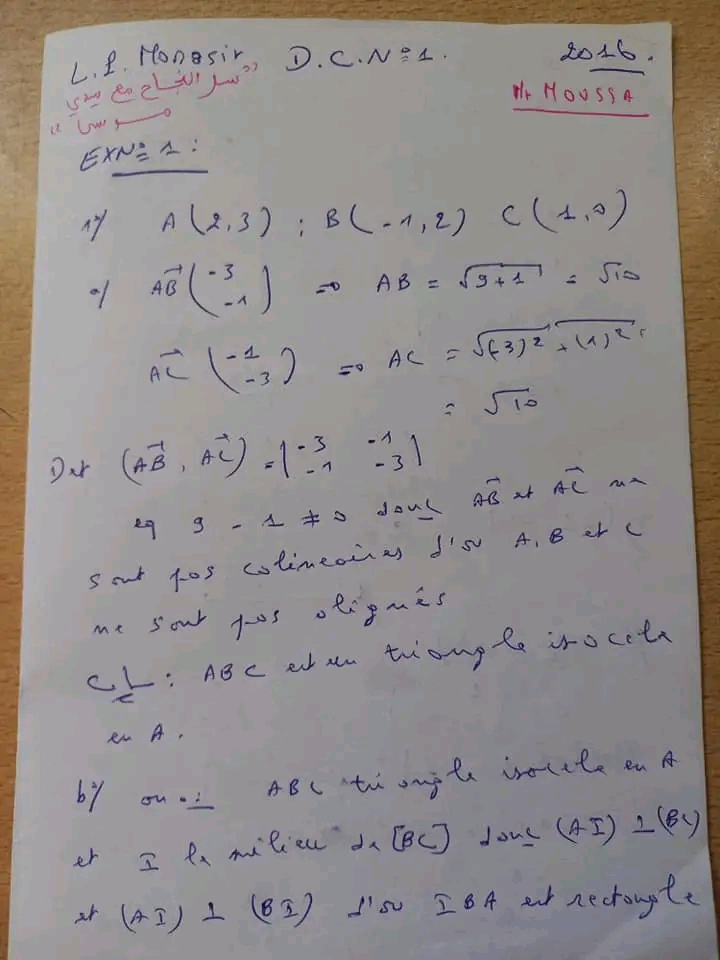 L.P. Monasir D.C.N°1. 2016.
"سر النجاح مع سيدي
موسى"
Mr MOUSSA
EXN°1 :
1°/ A(2,3) ; B(-1,2) C(1,0)
a/ AB→ (-3 -1) => AB = √9+1 = √10
AC→ (-1 -3) => AC = √(-3)² + (1)²
= √10
Det (AB→, AC→) = |-3 -1 -1 -3|
eq 9 - 1 ≠ 0 donc AB→ et AC→ ne
sont pas colineaires d'où A, B et C
ne sont pas alignés
CL : ABC est un triangle isocele
en A.
b°/ on a : ABC triangle isocele en A
et I le milieu de [BC] donc (AI) ⊥ (BC)
et (AI) ⊥ (BI) d'où IBA est rectangle